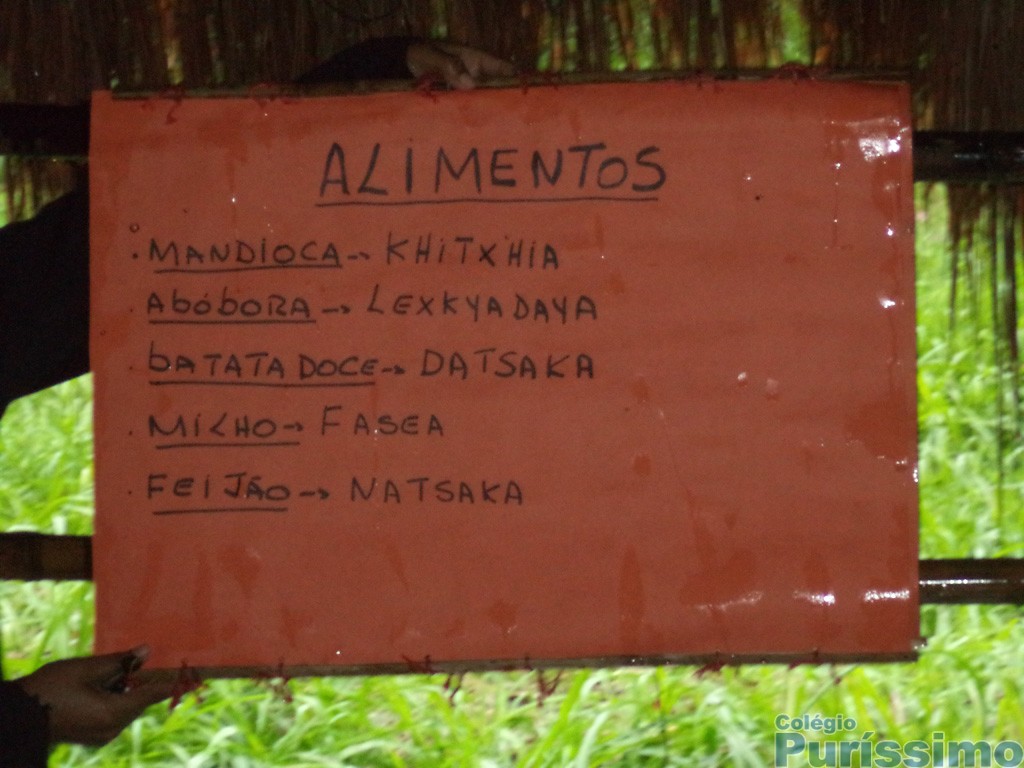 ALIMENTOS
. MANDIOCA -> KHITXHIA
. ABÓBORA -> LEXKYADAYA
. BATATA DOCE -> DATSAKA
. MILHO -> FASEA
. FEIJÃO -> NATSAKA
Colégio
Puríssimo